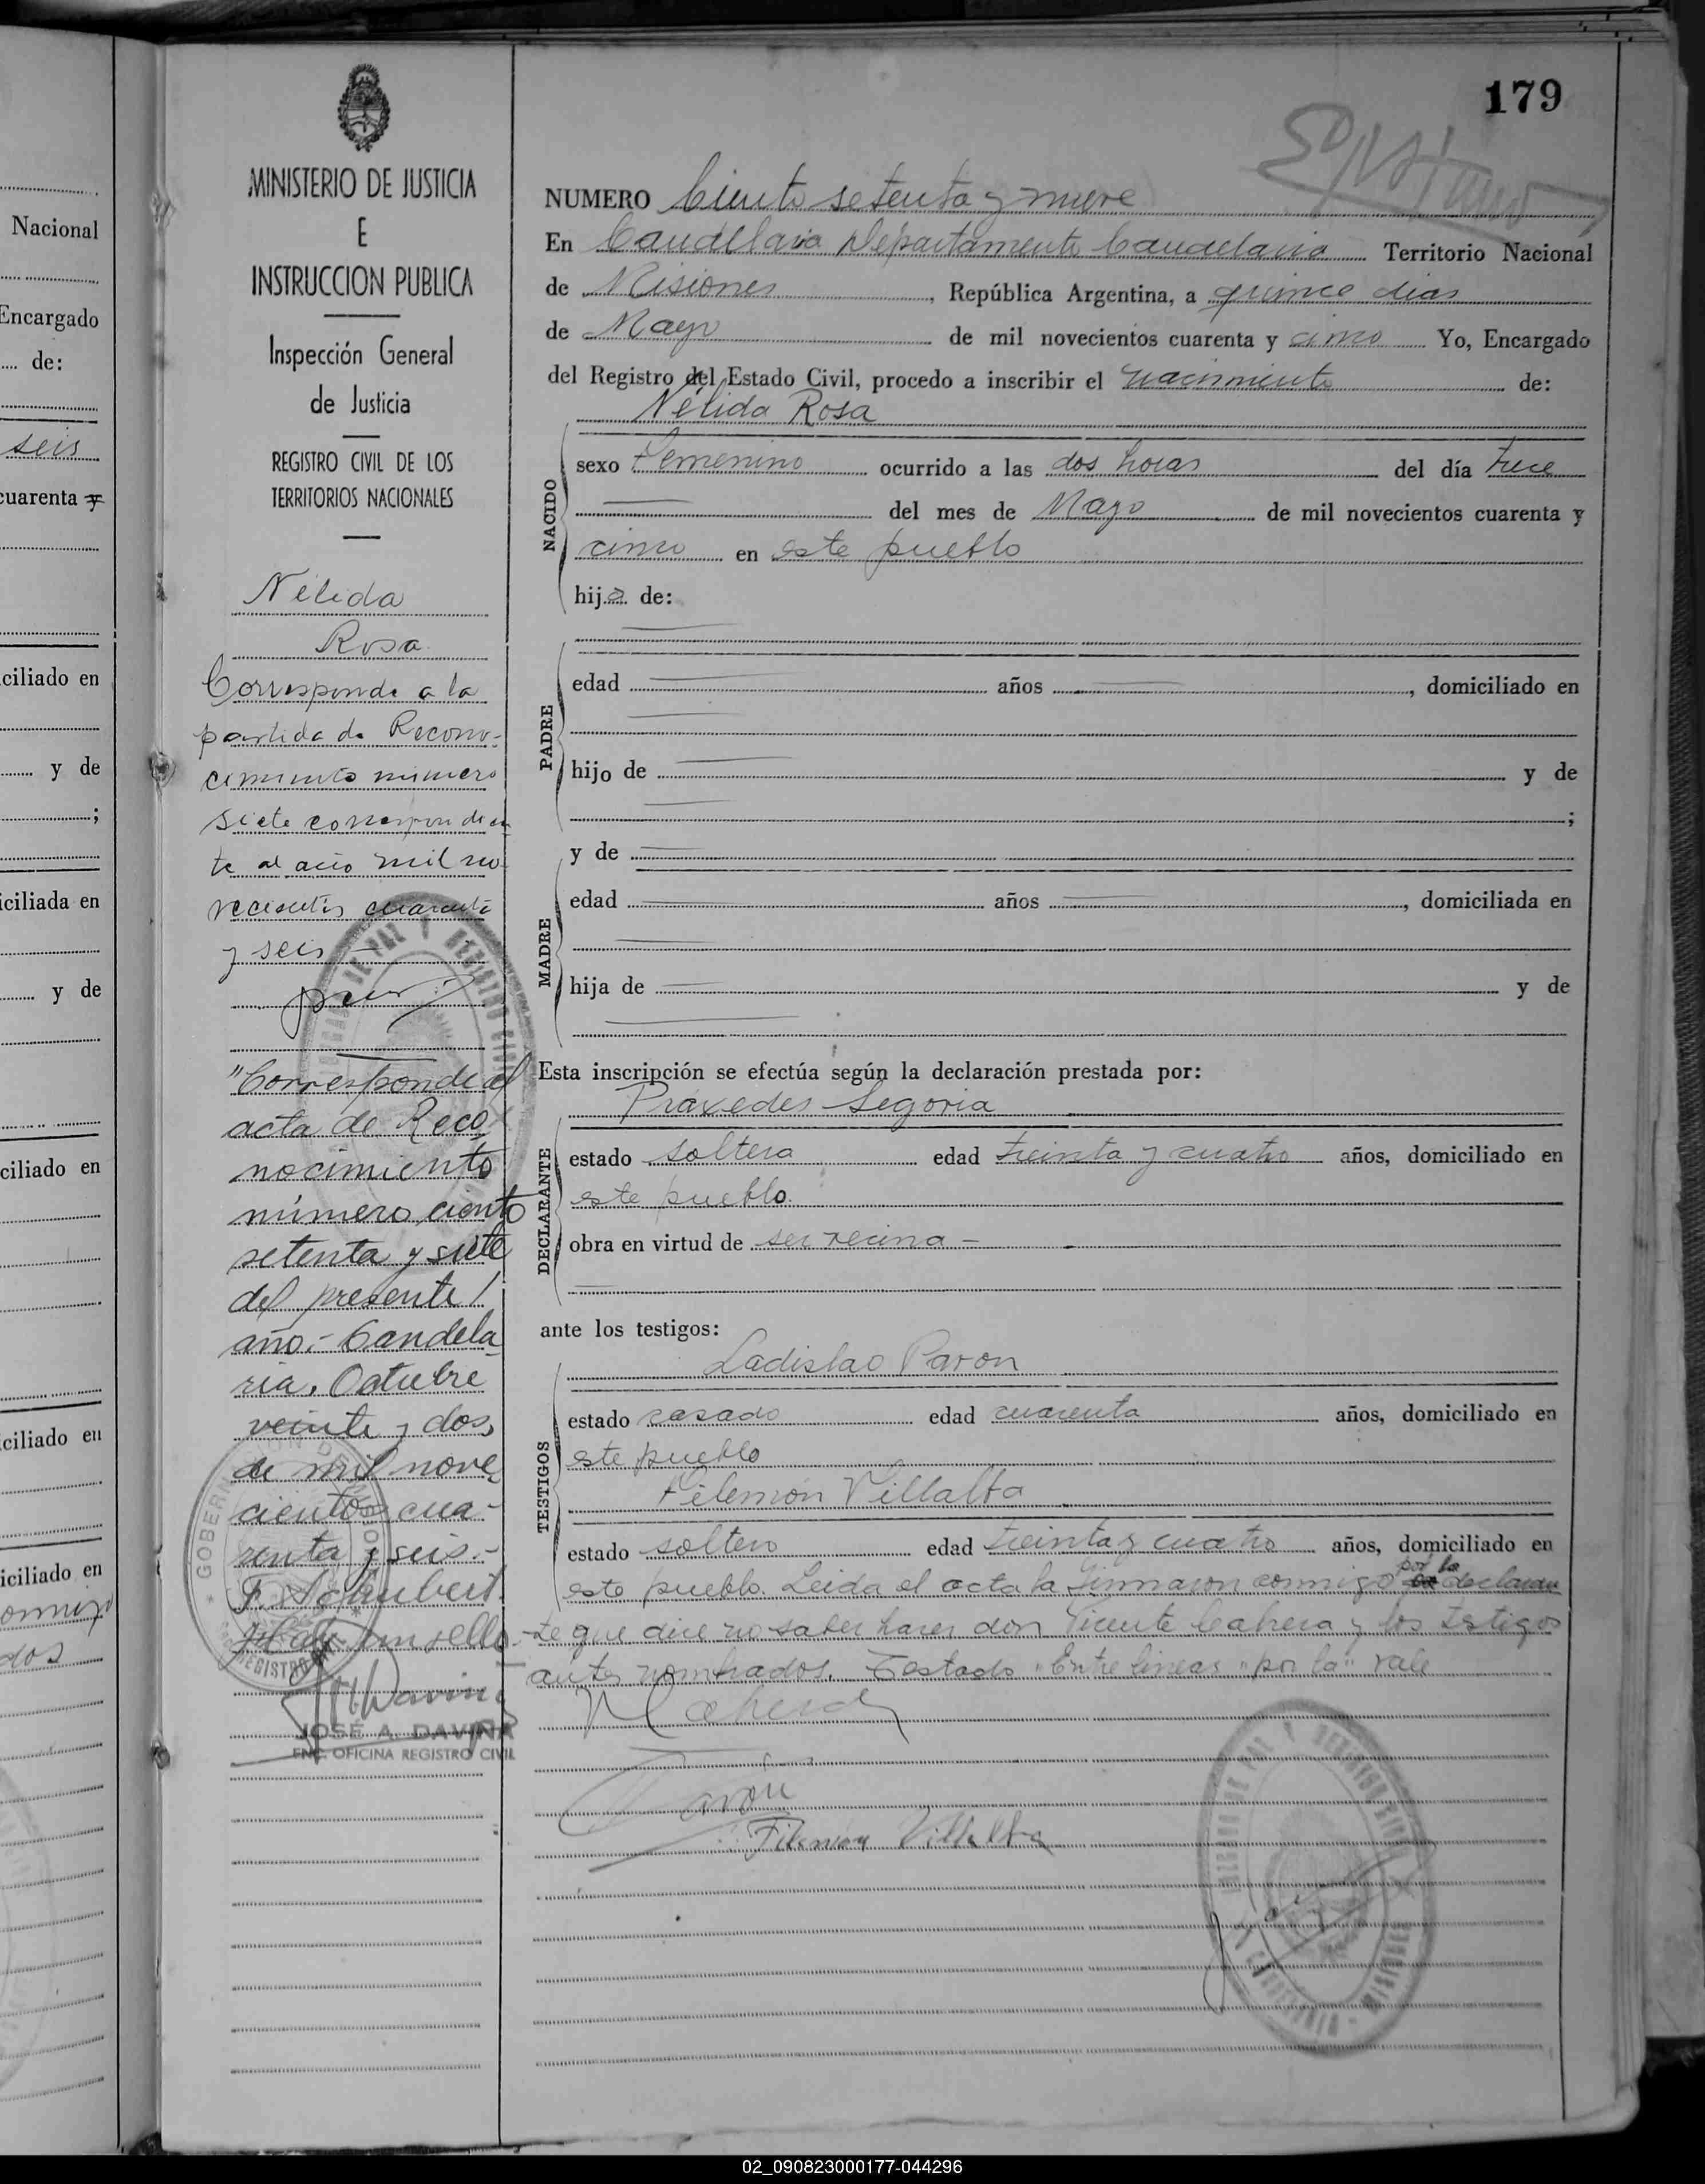 179
MINISTERIO DE JUSTICIA
E
INSTRUCCION PUBLICA
Inspección General
de Justicia
REGISTRO CIVIL DE LOS
TERRITORIOS NACIONALES
Nélida
Rosa
Corresponde a la
partida de Recono-
cimiento número
siete correspondien
te al año mil no-
vecientos cuarenta
y seis
"Corresponde al
acta de Reco
nocimiento
número ciento
setenta y siete
del presente
año.- Candela
ria. Octubre
veinte y dos
de mil nove
cientos cua-
renta y seis.-
F. Schubert.
JOSÉ A. DAVIÑA
ENC. OFICINA REGISTRO CIVIL
NUMERO Ciento setenta y nueve
En Candelaria Departamento Candelaria Territorio Nacional
de Misiones, República Argentina, a quince dias
de Mayo de mil novecientos cuarenta y cinco Yo, Encargado
del Registro del Estado Civil, procedo a inscribir el nacimiento de:
Nélida Rosa
NACIDO
sexo Femenino ocurrido a las dos horas del día trece
del mes de Mayo de mil novecientos cuarenta y
cinco en este pueblo
hija de:
PADRE
edad años, domiciliado en
hijo de y de
;
MADRE
y de
edad años, domiciliada en
hija de y de
Esta inscripción se efectúa según la declaración prestada por:
Práxedes Segovia
DECLARANTE
estado soltera edad treinta y cuatro años, domiciliado en
este pueblo.
obra en virtud de ser vecina -
ante los testigos:
Ladislao Paron
TESTIGOS
estado casado edad cuarenta años, domiciliado en
este pueblo
Filemón Villalba
estado soltero edad treinta y cuatro años, domiciliado en
este pueblo. Leida el acta la firmaron conmigo por la declaran
te que dice no saber hacer don Vicente Cabrera y los testigos
antes nombrados. Testado "Entre lineas "por la" vale
Cabrera
Paron
Filemon Villalba
Nacional
Encargado
de:
seis
cuarenta y
ciliado en
y de
;
iciliada en
y de
ciliado en
ciliado en
iciliado en
dos
02_090823000177-044296